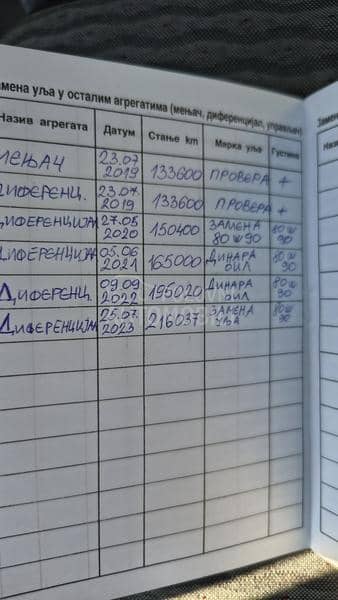 амена уља у осталим агрегатима (мењач, диференцијал, управљач)
Назив агрегата Датум Стање km Марка уља Густина
МЕЊАЧ 23.07 2019 133600 ПРОВЕРА +
ДИФЕРЕНЦ. 23.07 2019 133600 ПРОВЕРА +
ДИФЕРЕНЦИЈАЛ 27.05 2020 150400 ЗАМЕНА 80W90 80W 90
ДИФЕРЕНЦИЈАЛ 05.06 2021 165000 ДИНАРА ОИЛ 80W 90
ДИФЕРЕНЦ. 09.09 2022 195020 ДИНАРА ОИЛ 80W 90
ДИФЕРЕНЦИЈАЛ 25.07. 2023 216037 ЗАМЕНА УЉА 80W 90
Замен
Назив